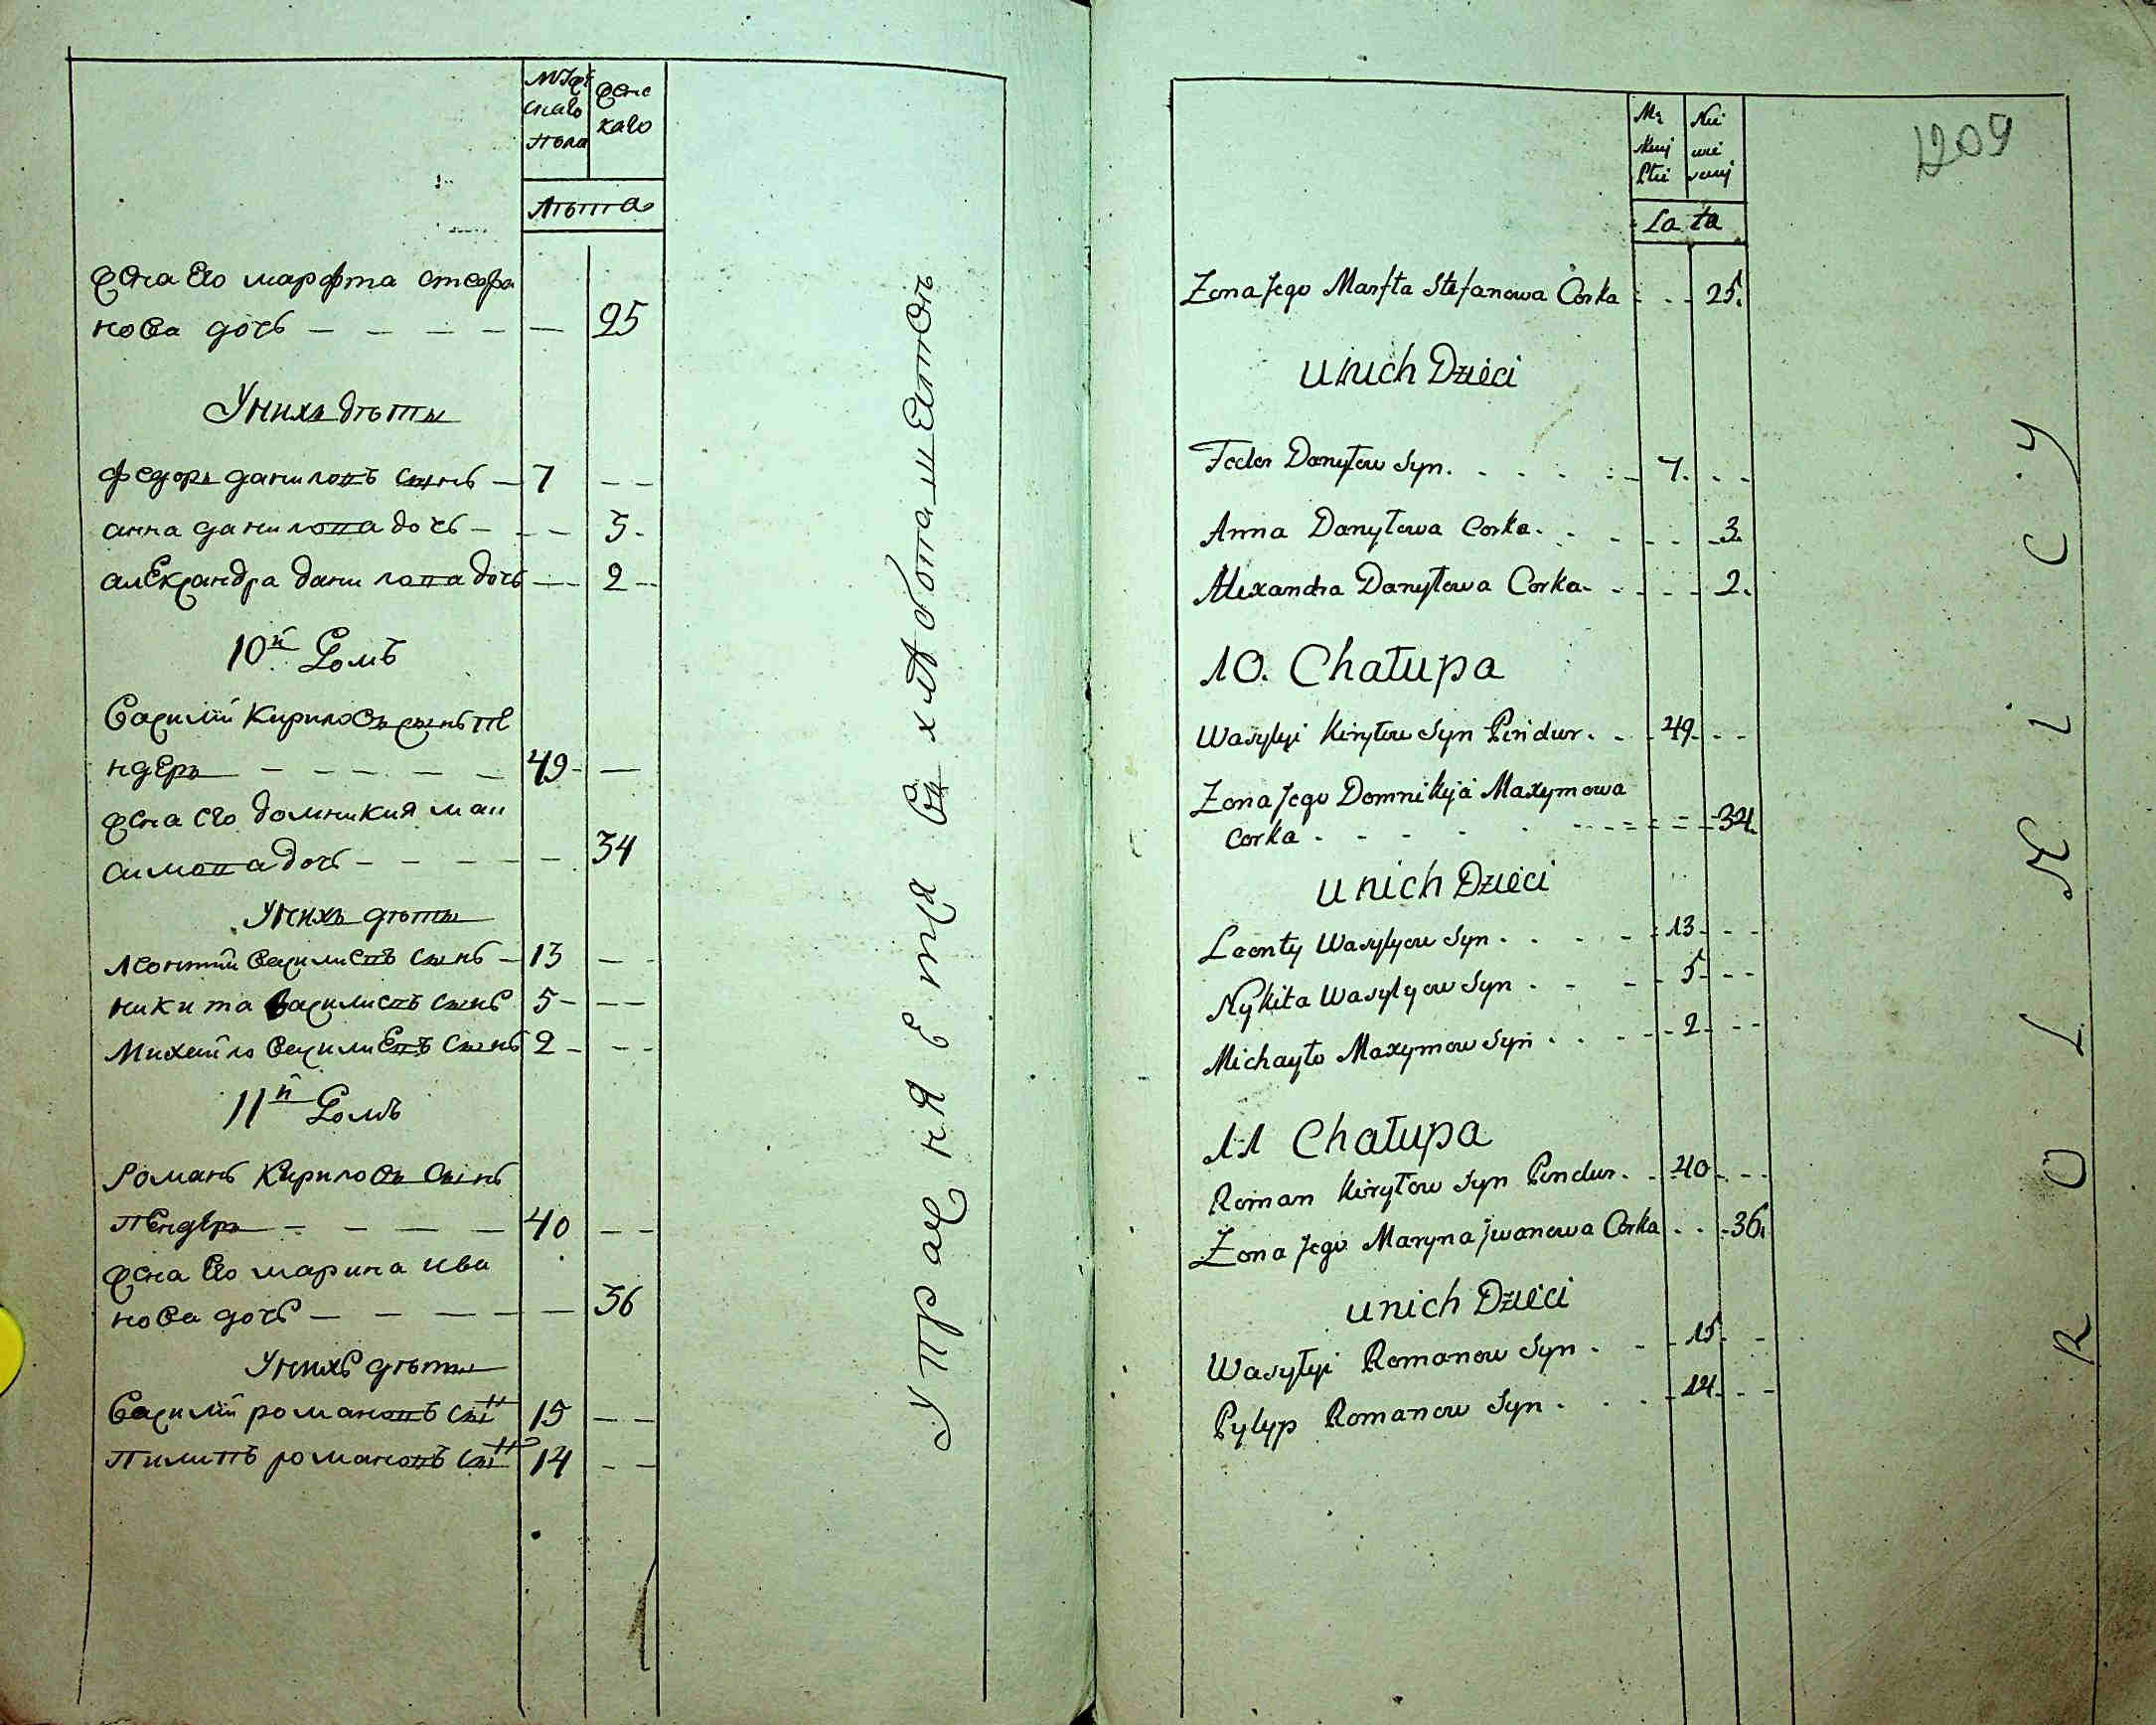 мужескаго пола
женскаго
лѣта
жена его марфта стефа
нова дочь — — — — — 25
У нихъ дѣты
федоръ даниловъ сынъ — 7 — —
анна данилова дочь — — — 3 -
александра данилова дочь — — 2 —
10й Домъ
василій Кириловъ сынъ пе
ндеръ — — — — — 49 - —
жена его домникия мак
симова дочь — — — — — 34
У нихъ дѣты
леонтій василиевъ сынъ — 13 — -
никита василиевъ сынъ 5 - — —
михайло василиевъ сынъ 2 - - -
11й Домъ
романъ Кириловъ сынъ
пендеръ — — — — 40 — —
жена его марина ива
нова дочь — — — — — 36
У нихъ дѣты
василій романовъ сынъ 15 — —
пилипъ романовъ сынъ 14 - —
Упражняется въ хлѣбопашествѣ
1209
Męzkiej Płci
La ta
Zona Jego Marfta Stefanowa Corka - - - 25.
U nich Dzieci
Fedor Danyłow Syn. - - - - - 7. - -
Anna Danyłowa Corka. - - - - - 3.
Alexandra Danyłowa Corka. - - - - 2.
10. Chałupa
Wasylyi Kiryłow Syn Pindur. - - 49 - -
Zona Jego Domnikija Maxymowa
Corka - - - - - - - - - 34.
U nich Dzieci
Leonty Wasylyow Syn - - - - 13 - -
Nykita Wasylyow Syn - - - - 5 - -
Michayło Maxymow Syn - - - - 2 - -
11 Chałupa
Roman Kiryłow Syn Pindur. - 40 - -
Zona Jego Maryna Jwanowa Corka - - 36.
U nich Dzieci
Wasyłyi Romanow Syn - - 15 - -
Pylyp Romanow Syn - - - 14 - -
ROLNICY